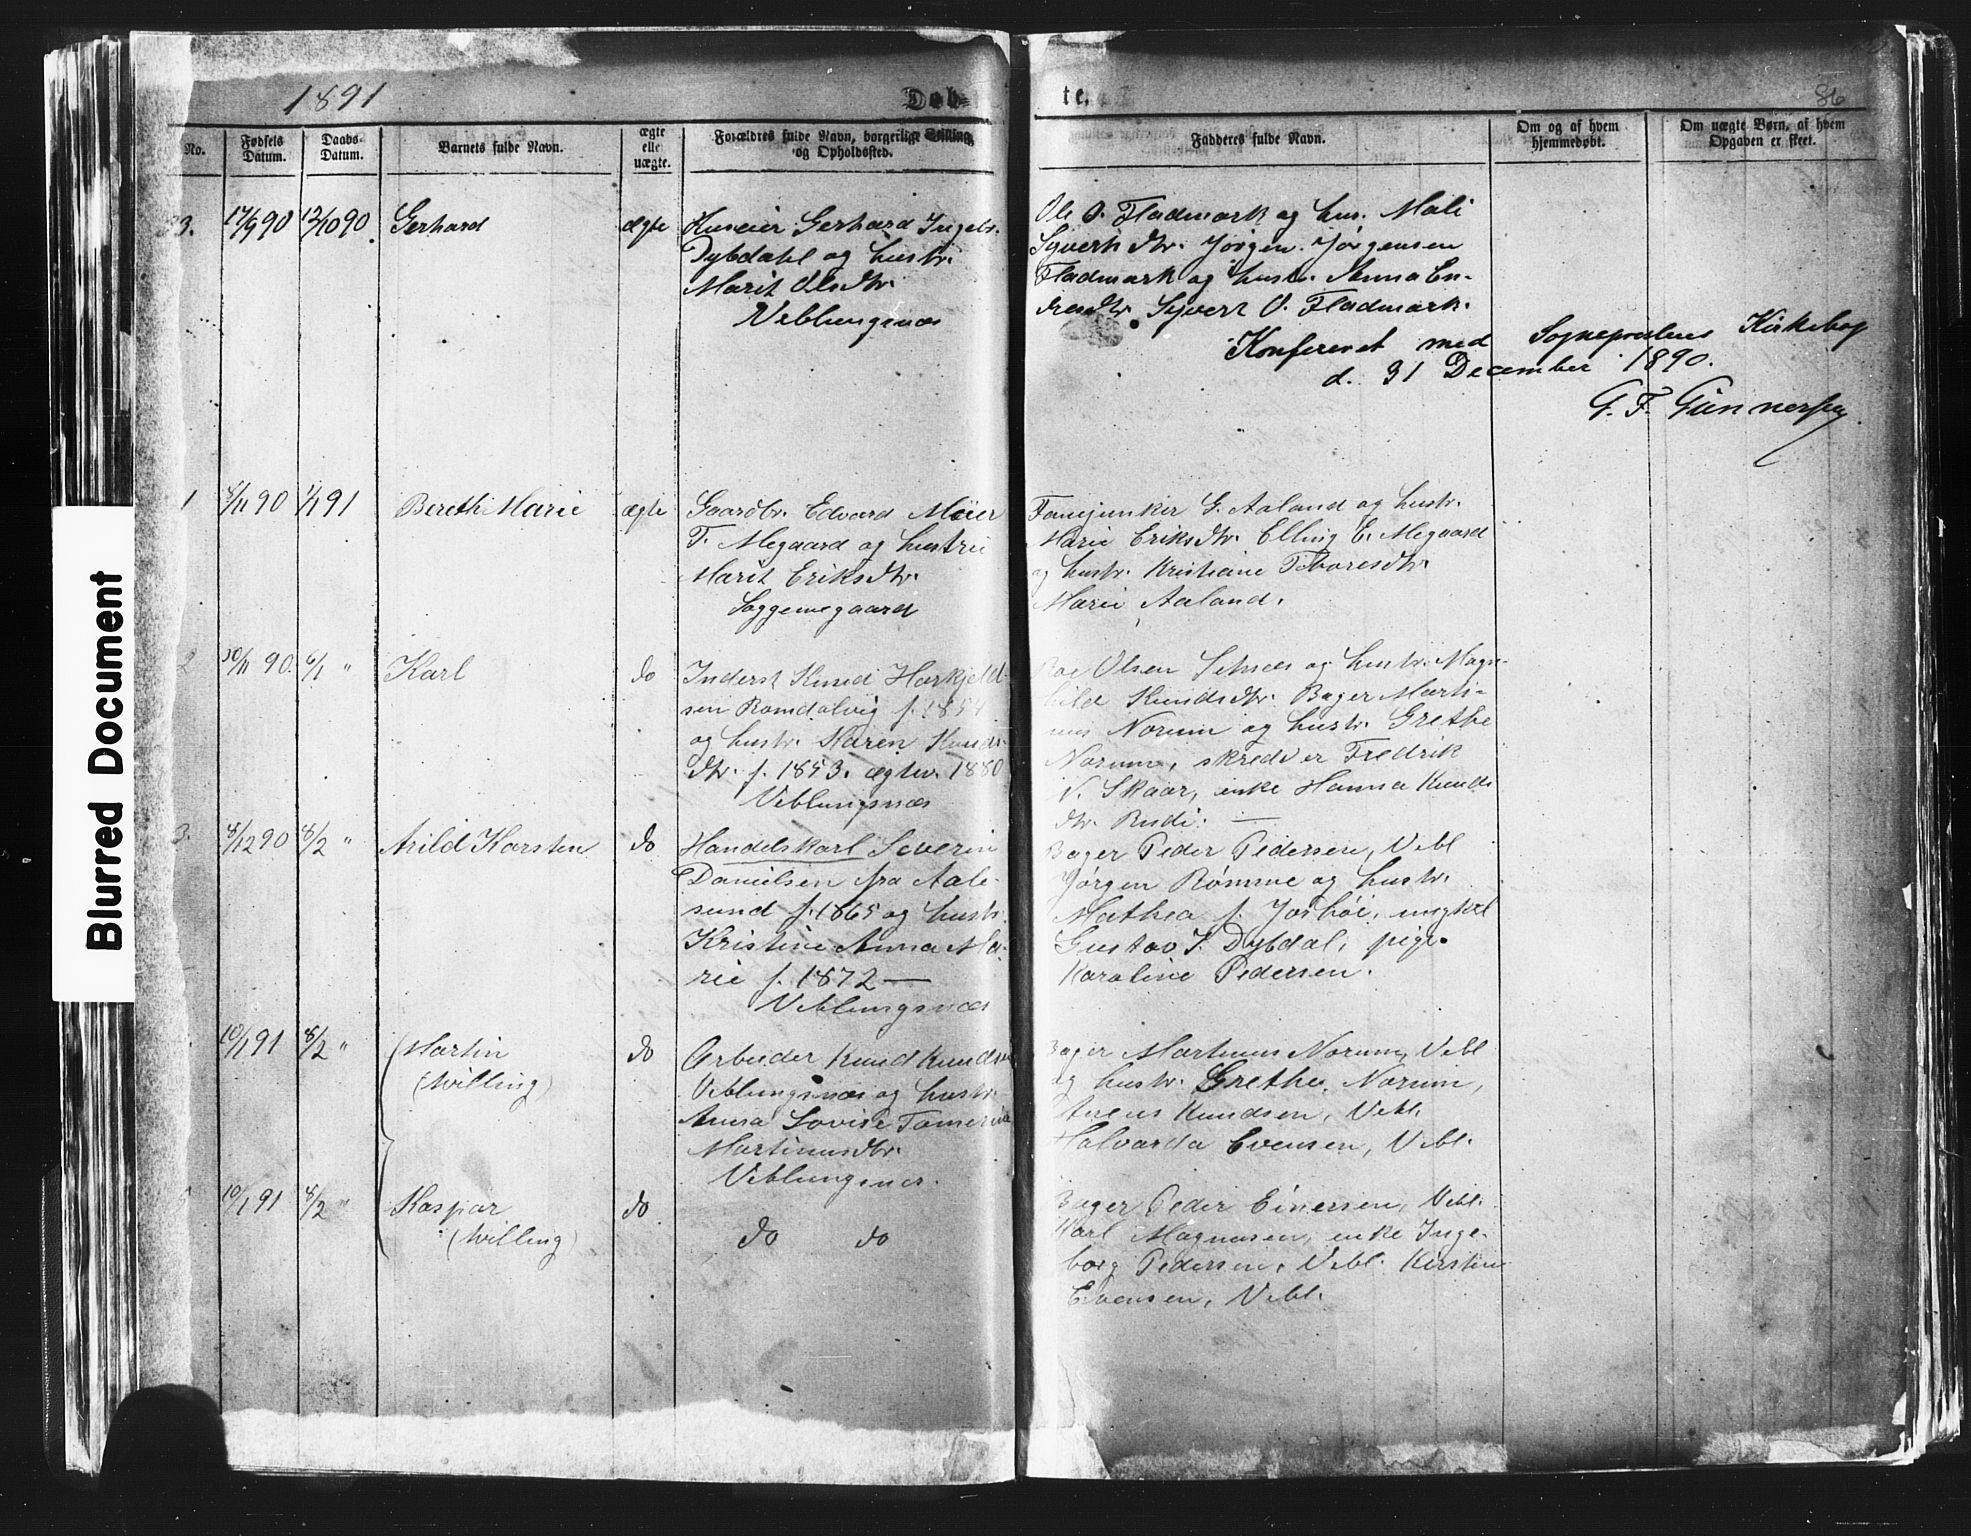 1891
Døb-
te.
86
No.
Fødsels Datum.
Daabs- Datum.
Barnets fulde Navn.
ægte elle uægte.
Forældres fulde Navn, borgerlige Stilling og Opholdssted.
Fadderes fulde Navn.
Om og af hvem hjemmedøbt.
Om uægte Børn, af hvem Opgaven er skeet.
3. 17/9 90 12/10 90 Gerhard ægte
Huseier Gerhard Ingebr.
Dybdahl og hustr.
Marit Olsdtr.
Veblungsnæs
Ole O. Fladmark og hus. Mali
Syvertsdtr. Jørgen Jørgensen
Fladmark og hustr. Anna En-
dresdtr. Syvert O. Fladmark.
Konfereret med Sognepræstens Kirkebog
d. 31 December 1890.
G. F. Gunnersen
1 8/11 90 1/1 91 Bereth Marie ægte
Gaardbr. Edvard Meier
T. Megaard og hustru
Marit Eriksdtr.
Soggemegaard
Fanejunker G. Aaland og hustr.
Marie Eriksdtr. Elling E. Megaard
og hustr. Kristiane Toresdtr.
Marie Aaland.
2 30/11 90. 6/1 " Karl do
Inderst Knud Haskjeld-
sen Romdalvig f. 1854
og hustr. Karen Knuds-
dtr. f. 1853. ægtev. 1880
Veblungsnæs
Roe Olsen Setnæs og hustr. Magn-
hild Knudsdtr. Bager Marti-
nus Norum og hustr. Grethe
Norum, skrædder Fredrik
N. Skaar, enke Hanna Knuds
dtr. Rudi. —
3. 8/12 90 8/2 " Arild Karsten do
Handelskarl Severin
Danielsen fra Aale-
sund f. 1865 og hustr.
Kristine Anna Ma-
rie f. 1872 —
Veblungsnæs
Bager Peder Pedersen, Vebl
Jørgen Rømme og hustr.
Mathea f. ungkarl
Gustav I. Dybdal, pige
Karoline Pedersen.
10/1 91 8/2 " Martin do
(tvilling)
Arbeider Knud Knudsen
Veblungsnæs og hustr.
Anna Lovise Tomerine
Martinusdtr.
Veblungsnæs.
Bager Martinus Norum, Vebl
og hustr. Grethe Norum,
Knudsen, Vebl.
Halvarda Evensen, Vebl.
5 10/1 91 8/2 " Kaspar do
(tvilling)
do do
Bager Peder Einersen, Vebl.
Karl Magnusen, enke Inge-
borg Pedersen, Vebl. Kirstine
Evensen, Vebl.
Blurred Document